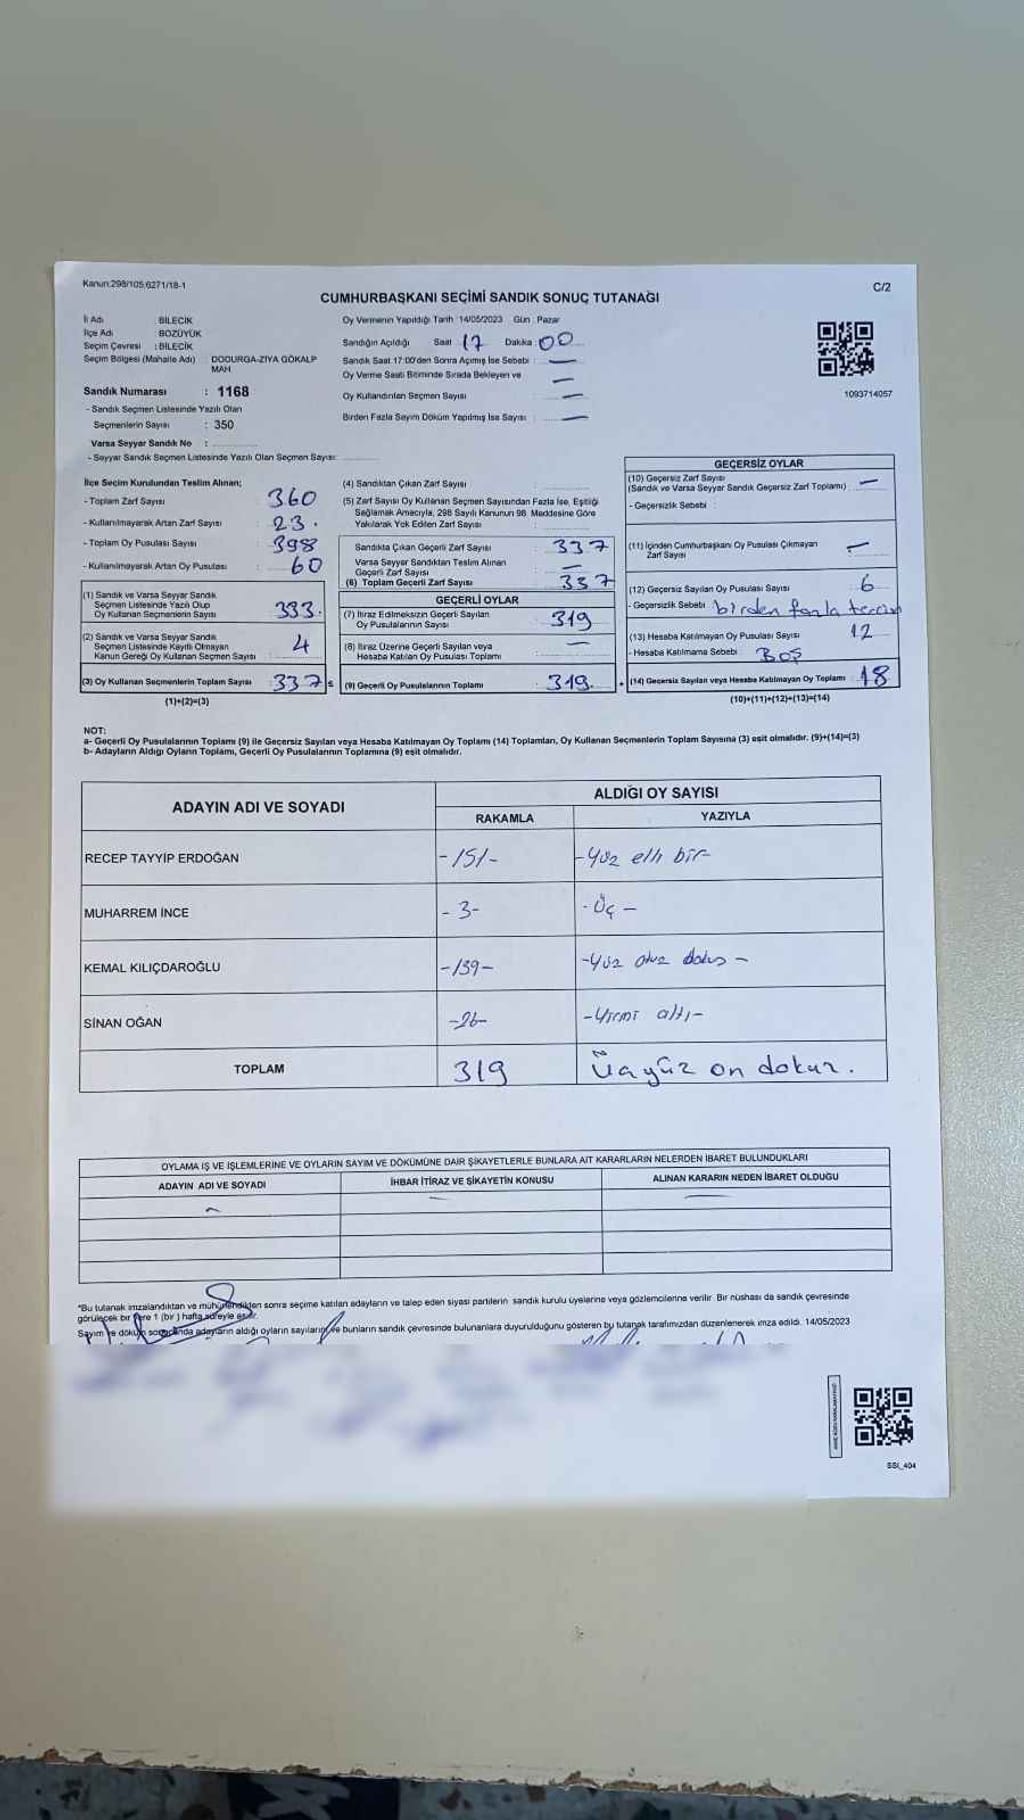 Kanun:298/105,6271/18-1
C/2
CUMHURBAŞKANI SEÇİMİ SANDIK SONUÇ TUTANAĞI
İl Adı : BİLECİK
İlçe Adı : BOZÜYÜK
Seçim Çevresi : BİLECİK
Seçim Bölgesi (Mahalle Adı) : DODURGA-ZİYA GÖKALP MAH
Sandık Numarası : 1168
- Sandık Seçmen Listesinde Yazılı Olan
Seçmenlerin Sayısı : 350
Varsa Seyyar Sandık No :
- Seyyar Sandık Seçmen Listesinde Yazılı Olan Seçmen Sayısı:
Oy Vermenin Yapıldığı Tarih :14/05/2023 Gün : Pazar
Sandığın Açıldığı Saat : 17 Dakika : 00
Sandık Saat 17:00'den Sonra Açılmış İse Sebebi : —
Oy Verme Saati Bitiminde Sırada Bekleyen ve —
Oy Kullandırılan Seçmen Sayısı : —
Birden Fazla Sayım Döküm Yapılmış İse Sayısı : —
1093714057
İlçe Seçim Kurulundan Teslim Alınan;
- Toplam Zarf Sayısı : 360
- Kullanılmayarak Artan Zarf Sayısı : 23.
- Toplam Oy Pusulası Sayısı : 398
- Kullanılmayarak Artan Oy Pusulası : 60
(1) Sandık ve Varsa Seyyar Sandık
Seçmen Listesinde Yazılı Olup
Oy Kullanan Seçmenlerin Sayısı : 333.
(2) Sandık ve Varsa Seyyar Sandık
Seçmen Listesinde Kayıtlı Olmayan
Kanun Gereği Oy Kullanan Seçmen Sayısı : 4
(3) Oy Kullanan Seçmenlerin Toplam Sayısı : 337
(1)+(2)=(3)
(4) Sandıktan Çıkan Zarf Sayısı :
(5) Zarf Sayısı Oy Kullanan Seçmen Sayısından Fazla İse, Eşitliği
Sağlamak Amacıyla, 298 Sayılı Kanunun 98. Maddesine Göre
Yakılarak Yok Edilen Zarf Sayısı :
Sandıkta Çıkan Geçerli Zarf Sayısı : 337
Varsa Seyyar Sandıktan Teslim Alınan
Geçerli Zarf Sayısı : —
(6) Toplam Geçerli Zarf Sayısı : 337
GEÇERLİ OYLAR
(7) İtiraz Edilmeksizin Geçerli Sayılan
Oy Pusulalarının Sayısı : 319
(8) İtiraz Üzerine Geçerli Sayılan veya
Hesaba Katılan Oy Pusulası Toplamı : —
(9) Geçerli Oy Pusulalarının Toplamı : 319.
GEÇERSİZ OYLAR
(10) Geçersiz Zarf Sayısı
(Sandık ve Varsa Seyyar Sandık Geçersiz Zarf Toplamı) : —
- Geçersizlik Sebebi :
(11) İçinden Cumhurbaşkanı Oy Pusulası Çıkmayan
Zarf Sayısı : —
(12) Geçersiz Sayılan Oy Pusulası Sayısı : 6
- Geçersizlik Sebebi : birden fazla tercih
(13) Hesaba Katılmayan Oy Pusulası Sayısı : 12
- Hesaba Katılmama Sebebi : Boş
+ (14) Geçersiz Sayılan veya Hesaba Katılmayan Oy Toplamı : 18
(10)+(11)+(12)+(13)=(14)
NOT:
a- Geçerli Oy Pusulalarının Toplamı (9) ile Geçersiz Sayılan veya Hesaba Katılmayan Oy Toplamı (14) Toplamları, Oy Kullanan Seçmenlerin Toplam Sayısına (3) eşit olmalıdır. (9)+(14)=(3)
b- Adayların Aldığı Oyların Toplamı, Geçerli Oy Pusulalarının Toplamına (9) eşit olmalıdır.
ADAYIN ADI VE SOYADI
ALDIĞI OY SAYISI
RAKAMLA YAZIYLA
RECEP TAYYİP ERDOĞAN -151- -Yüz elli bir-
MUHARREM İNCE -3- -Üç-
KEMAL KILIÇDAROĞLU -139- -Yüz otuz dokuz-
SİNAN OĞAN -26- -Yirmi altı-
TOPLAM 319 Üçyüz on dokuz.
OYLAMA İŞ VE İŞLEMLERİNE VE OYLARIN SAYIM VE DÖKÜMÜNE DAİR ŞİKAYETLERLE BUNLARA AİT KARARLARIN NELERDEN İBARET BULUNDUKLARI
ADAYIN ADI VE SOYADI İHBAR İTİRAZ VE ŞİKAYETİN KONUSU ALINAN KARARIN NEDEN İBARET OLDUĞU
*Bu tutanak imzalandıktan ve mühürlendikten sonra seçime katılan adayların ve talep eden siyasi partilerin sandık kurulu üyelerine veya gözlemcilerine verilir. Bir nüshası da sandık çevresinde
görülecek bir yere 1 (bir) hafta süreyle asılır.
Sayım ve döküm sonucunda adayların aldığı oyların sayılarını ve bunların sandık çevresinde bulunanlara duyurulduğunu gösteren bu tutanak tarafımızdan düzenlenerek imza edildi. 14/05/2023
SSI_404